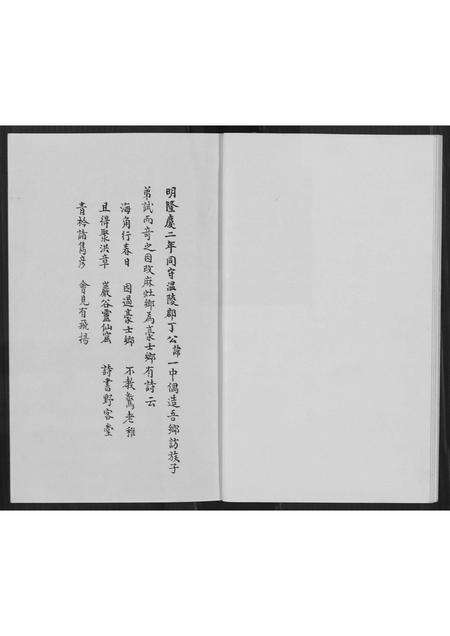 明隆慶二年同守溫陵郡丁公諱一中偶造吾鄉訪族子
弟試而奇之因改麻灶鄉為豪士鄉有詩云
海角行春日　因過豪士鄉　不教驚老稚
且得聚洪章　巖谷靈仙窟　詩書野客堂
青衿諸雋彥　會見有飛揚